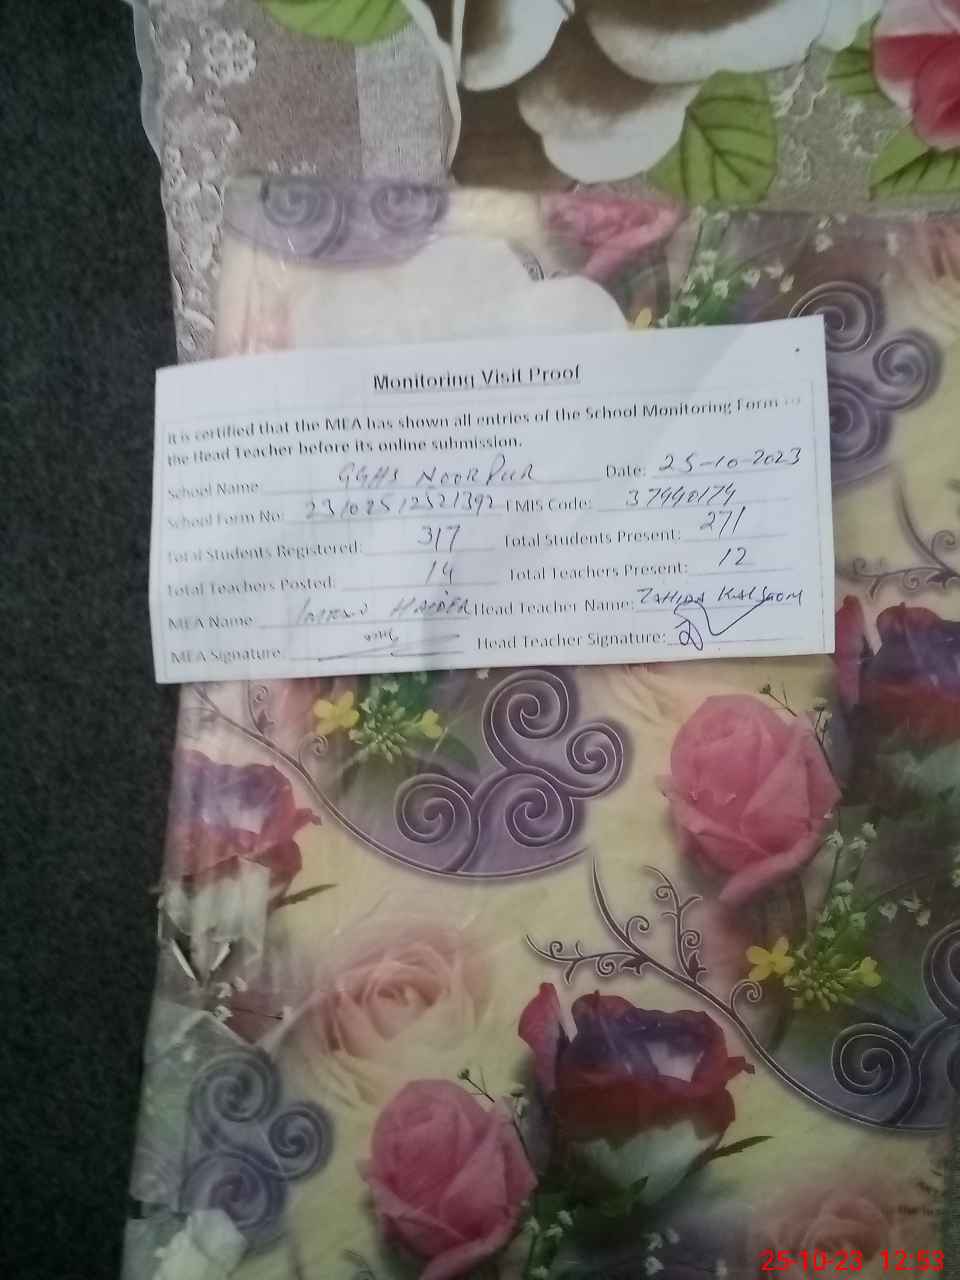 Monitoring Visit Proof
It is certified that the MEA has shown all entries of the School Monitoring Form to
the Head Teacher before its online submission.
School Name GGHS NOORPUR Date: 25-10-2023
School Form No: 23102512521392 EMIS Code: 37440174
Total Students Registered: 317 Total Students Present: 271
Total Teachers Posted: 14 Total Teachers Present: 12
MEA Name HAIDER Head Teacher Name: ZAHIDA KALSOOM
MEA Signature: Head Teacher Signature:
25-10-23 12:53